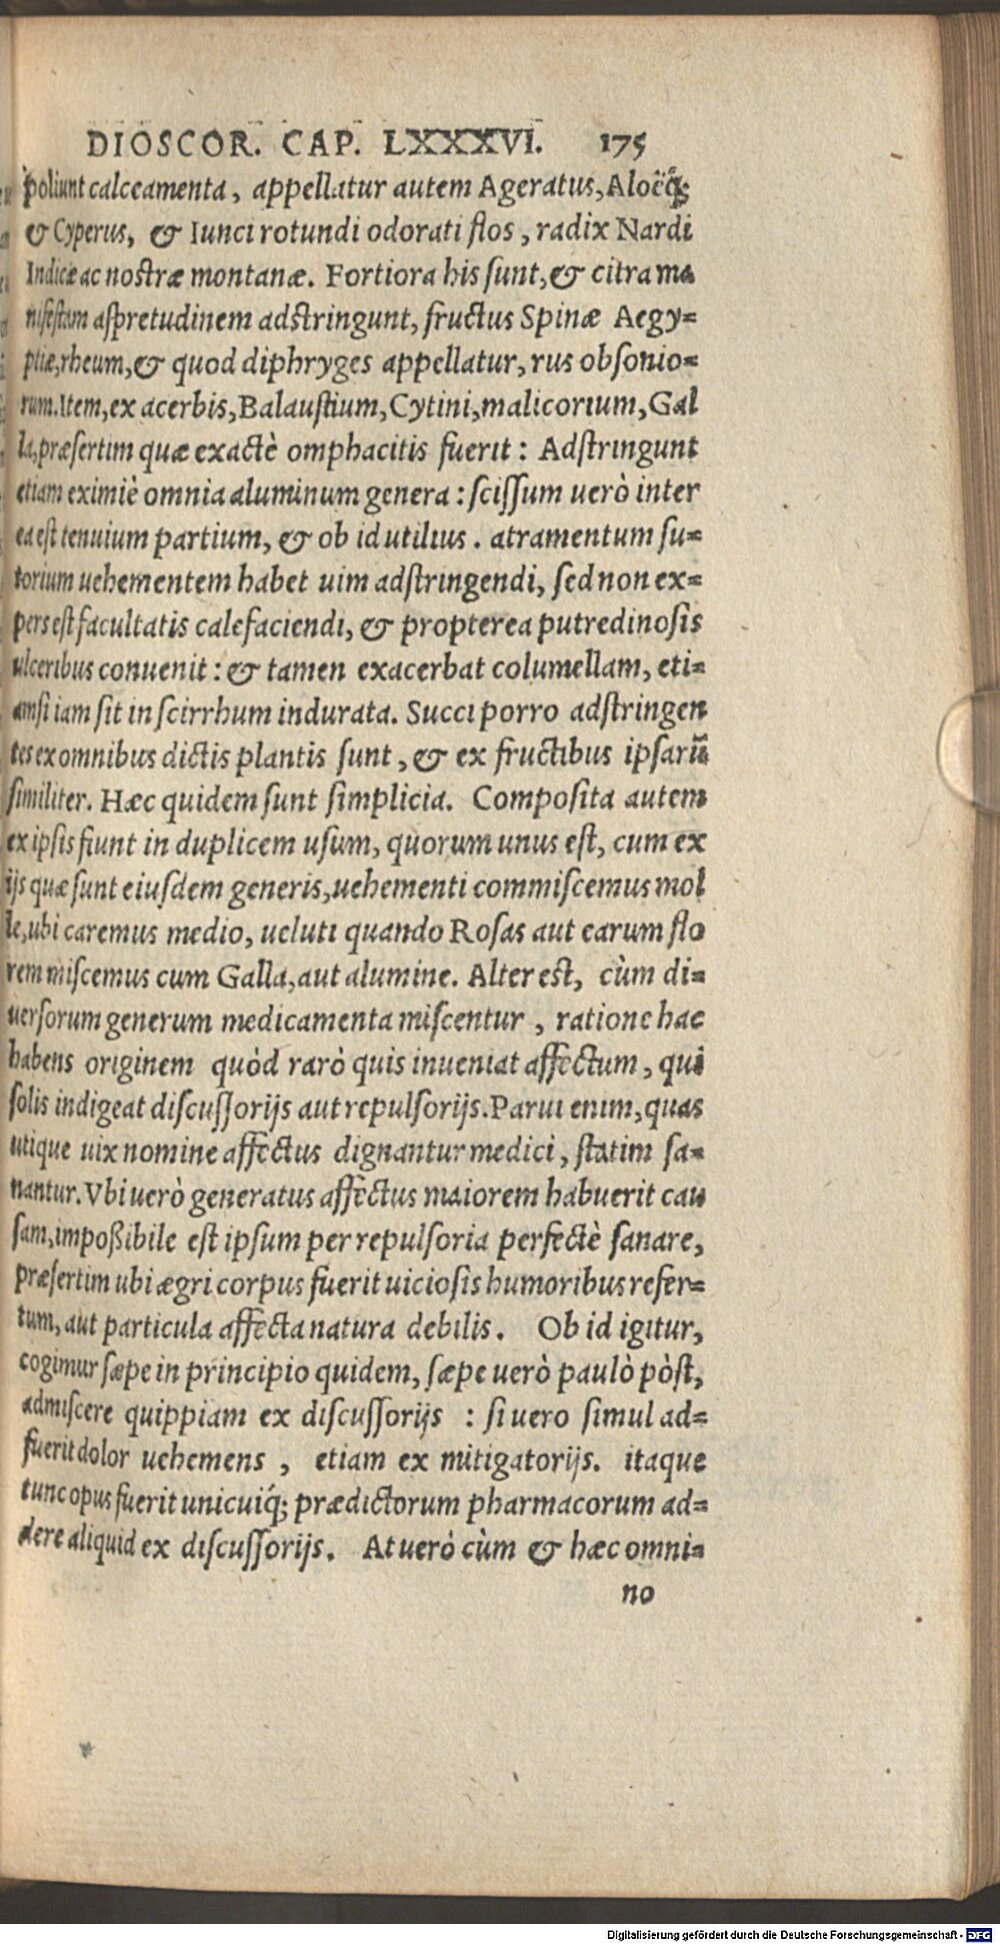 DIOSCOR. CAP. LXXXVI. 175
poliunt calceamenta, appellatur autem Ageratus, Aloëq́;
& Cyperus, & Iunci rotundi odorati flos, radix Nardi
Indicæ ac nostræ montanæ. Fortiora his sunt, & citra ma
nifestam aspretudinem adstringunt, fructus Spinæ Aegy=
ptiæ, rheum, & quod diphryges appellatur, rus obsonio=
rum. Item, ex acerbis, Balaustium, Cytini, malicorium, Gal
la, præsertim quæ exactè omphacitis fuerit: Adstringunt
etiam eximiè omnia aluminum genera: scissum uerò inter
ea est tenuium partium, & ob id utilius. atramentum su=
torium uehementem habet uim adstringendi, sed non ex=
pers est facultatis calefaciendi, & propterea putredinosis
ulceribus conuenit: & tamen exacerbat columellam, eti=
amsi iam sit in scirrhum indurata. Succi porro adstringen
tes ex omnibus dictis plantis sunt, & ex fructibus ipsarū
similiter. Hæc quidem sunt simplicia. Composita autem
ex ipsis fiunt in duplicem usum, quorum unus est, cum ex
ijs quæ sunt eiusdem generis, uehementi commiscemus mol
le, ubi caremus medio, ueluti quando Rosas aut earum flo
rem miscemus cum Galla, aut alumine. Alter est, cùm di=
uersorum generum medicamenta miscentur, ratione hac
habens originem quòd rarò quis inueniat affectum, qui
solis indigeat discussorijs aut repulsorijs. Parui enim, quas
utique uix nomine affectus dignantur medici, statim sa=
nantur. Vbi uerò generatus affectus maiorem habuerit cau
sam, impoßibile est ipsum per repulsoria perfectè sanare,
præsertim ubi ægri corpus fuerit uiciosis humoribus refer=
tum, aut particula affecta natura debilis. Ob id igitur,
cogimur sæpe in principio quidem, sæpe uerò paulò pòst,
admiscere quippiam ex discussorijs : si uero simul ad=
fuerit dolor uehemens, etiam ex mitigatorijs. itaque
tunc opus fuerit unicuiq́; prædictorum pharmacorum ad=
dere aliquid ex discussorijs. At uerò cùm & hæc omni=
no
Digitalisierung gefördert durch die Deutsche Forschungsgemeinschaft - DFG